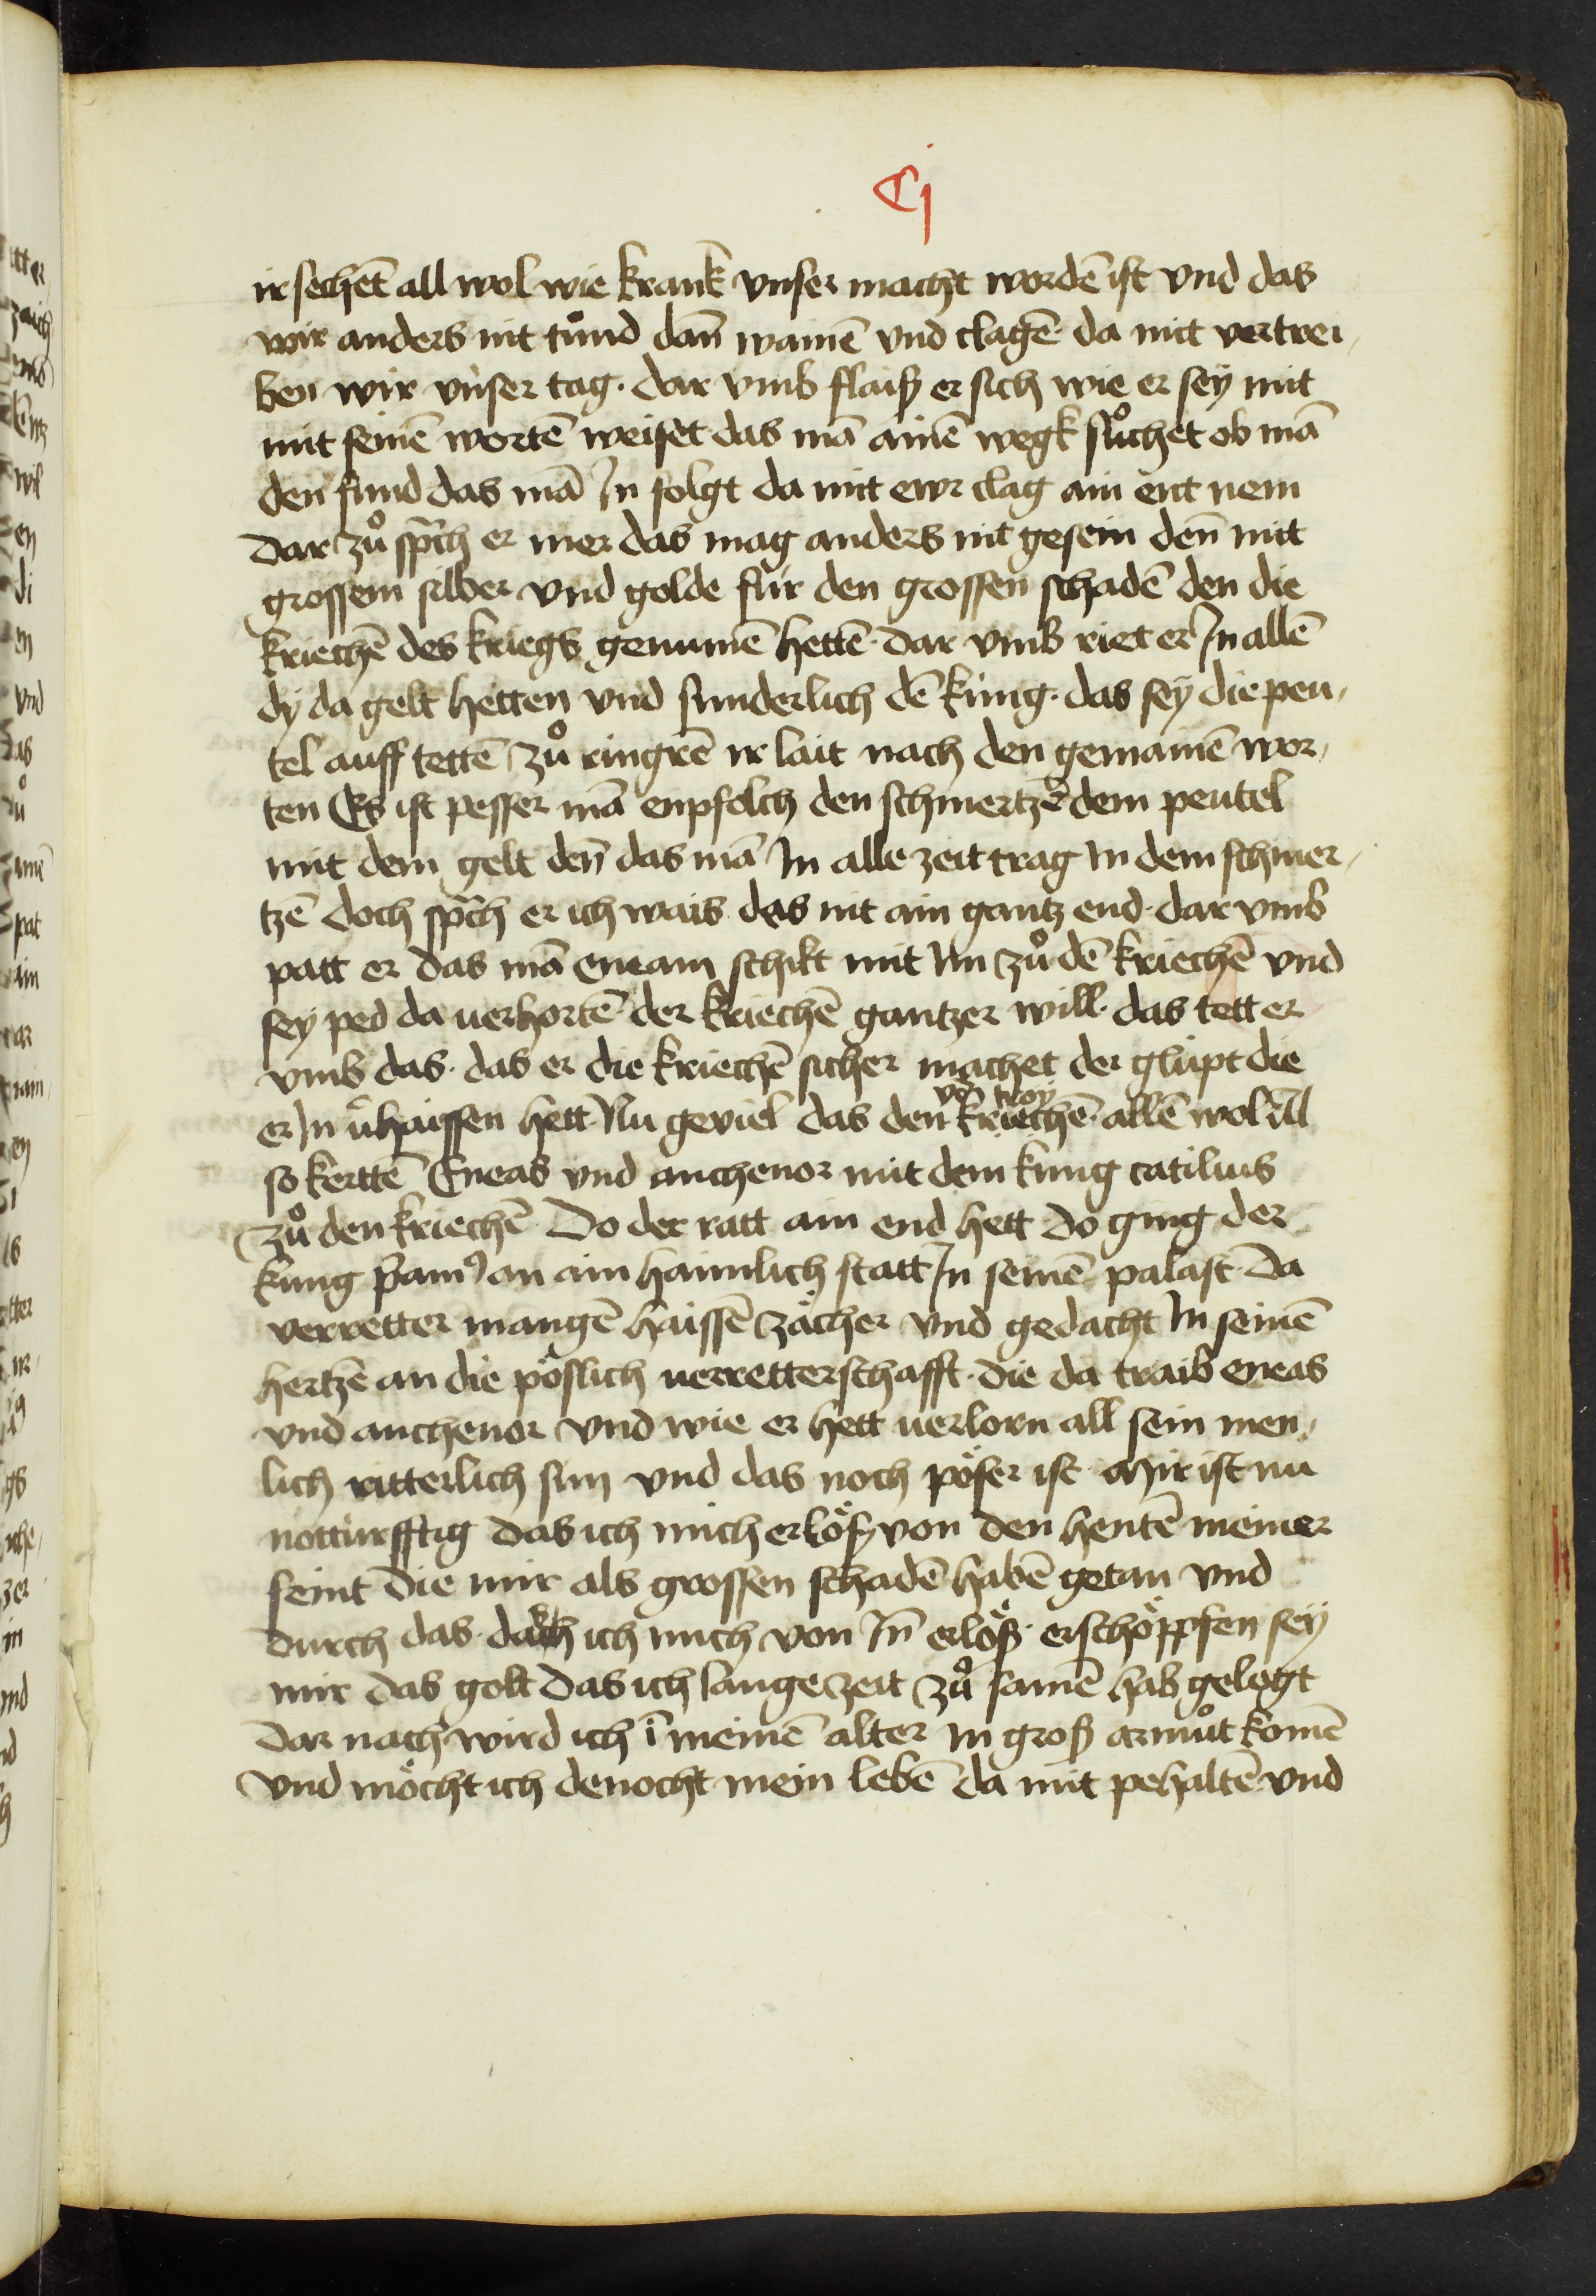 Cj
ir sechēt all wol wie kranck vnser macht wordē ist vnd das
wir anders nit tůnd dañ wainē vnd clagē da mit vertrei¬
ben wir vnser tag · dar vmb flaiß er sich wie er sey mit
mit seinē wortē weiset das mā ainē wegk sůchet ob mā
den fund das mā Jn folgt da mit ewr clag ain ent nem
Dar zů sp̄ch er mer das mag anders nit gesein deñ mit
grossem silber vnd golde für den grossen schadē den die
kriechē des kriegs genumē hettē · dar vmb riet er Jn allē
dy da gelt hetten vnd sunderlich dē küng · das sey die peu¬
tel auff tettē zů ringrē ir lait nach den gemainē wor¬
ten Es ist pesser mā enpfolch den schmertzē dem peutel
mit dem gelt deñ das mā Jn alle zeit trag Jn dem schmer¬
tzē doch sp̄ch er ich wais das nit ain gantz end · dar vmb
patt er das mā eneam schikt mit Jm zů dē kriechē vnd
sey ped da uerhortē der kriechē gantzer will · das tett er
vmb das · das er die kriechē sicher machet der glüpt die
võ troy
er Jn v̄haissen hett · Nu geviel das den kriechē · allē wol v̄l
so kerttē Eneas vnd anthenor mit dem küng catilius
zů den kriechē · Do der ratt ain end hett do ging der
küng p̄am9 an ain haimlich statt Jn seinē palast · Da
verretter mangē haissē zächer vnd gedacht Jn seinē
hertzē an die pöslich verretterschafft · die da traib eneas
vnd anthenor vnd wie er hett uerlorn all sein men¬
lich ritterlich sun vnd das noch pöser ist · Mir ist nu
notturfftig das ich mich erlöß von den hentē meiner
feint die mir als grossen schadē habē getan vnd
durch das · ich mich von Jñ erlöß · erschöppfen sey
mir das golt das ich lange zeit zů samē hab gelegt
Dar nach wird ich ī meinē alter Jn groß armůt komē
vnd möcht ich denocht mein lebē da mit pehaltē vnd